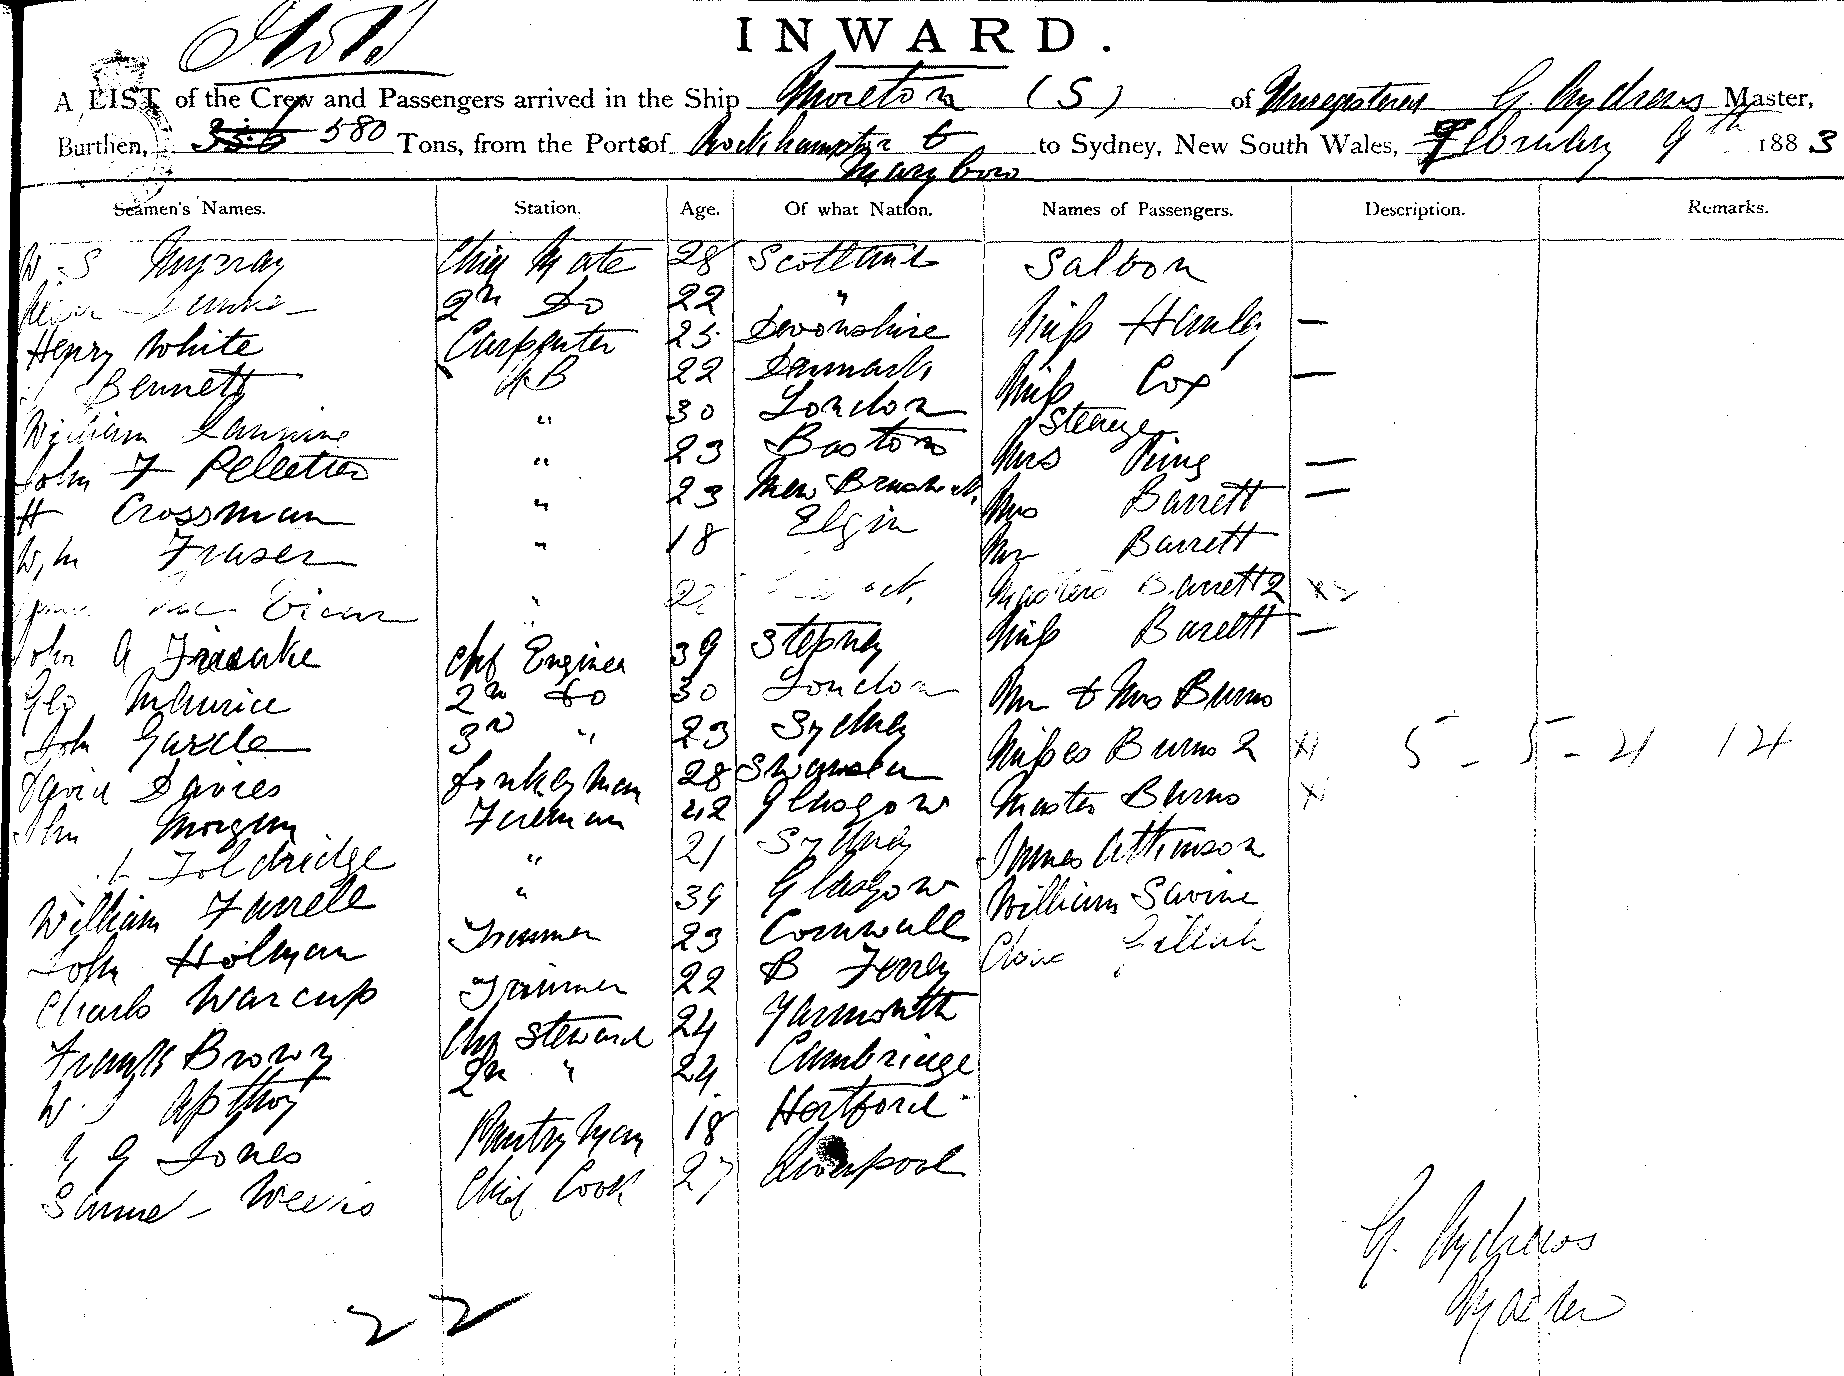 INWARD.
A LIST of the Crew and Passengers arrived in the Ship Moreton (S) of Unregistered G. Andrews Master,
Burthen, 580 Tons, from the Ports of Rockhampton & Maryboro to Sydney, New South Wales, February 9th 1883
Seamen's Names. Station. Age. Of what Nation. Names of Passengers. Description. Remarks.
W. S Murray Chief Mate 28 Scotland Saloon
2nd Do 22 "
Henry White Carpenter 25 Devonshire Miss Hanley —
Bennett AB 22 Denmark Miss Cox —
William " 30 London Steerage
John F Pelletier " 23 Boston Mrs King —
H Crossman " 23 New Brunswick Mrs Barrett —
Wm Fraser " 18 Elgin Mr Barrett
" Masters Barrett 2
John A Chf Engineer 39 Stepney Miss Barrett —
Geo Maurice 2nd do 30 London Mr & Mrs Burns
John 3rd " 23 Sydney Misses Burns 2 5 - 5 - 4 14
David Davies Donkeyman 28 Swansea Master Burns
John Morgan Fireman 42 Glasgow James Atkinson
Foldridge " 21 Sydney William Savine
William Farrell " 39 Glasgow
John Holman Trimmer 23 Cornwall
Charls Warcup Trimmer 22 B Ferry
Frank Brown Chf Steward 24 Yarmouth
W. J Apthorp 2nd " 24 Cambridge
G Jones Pantryman 18 Hertford
Samuel Chief Cook 27 Liverpool
22
G. Andrews
Master